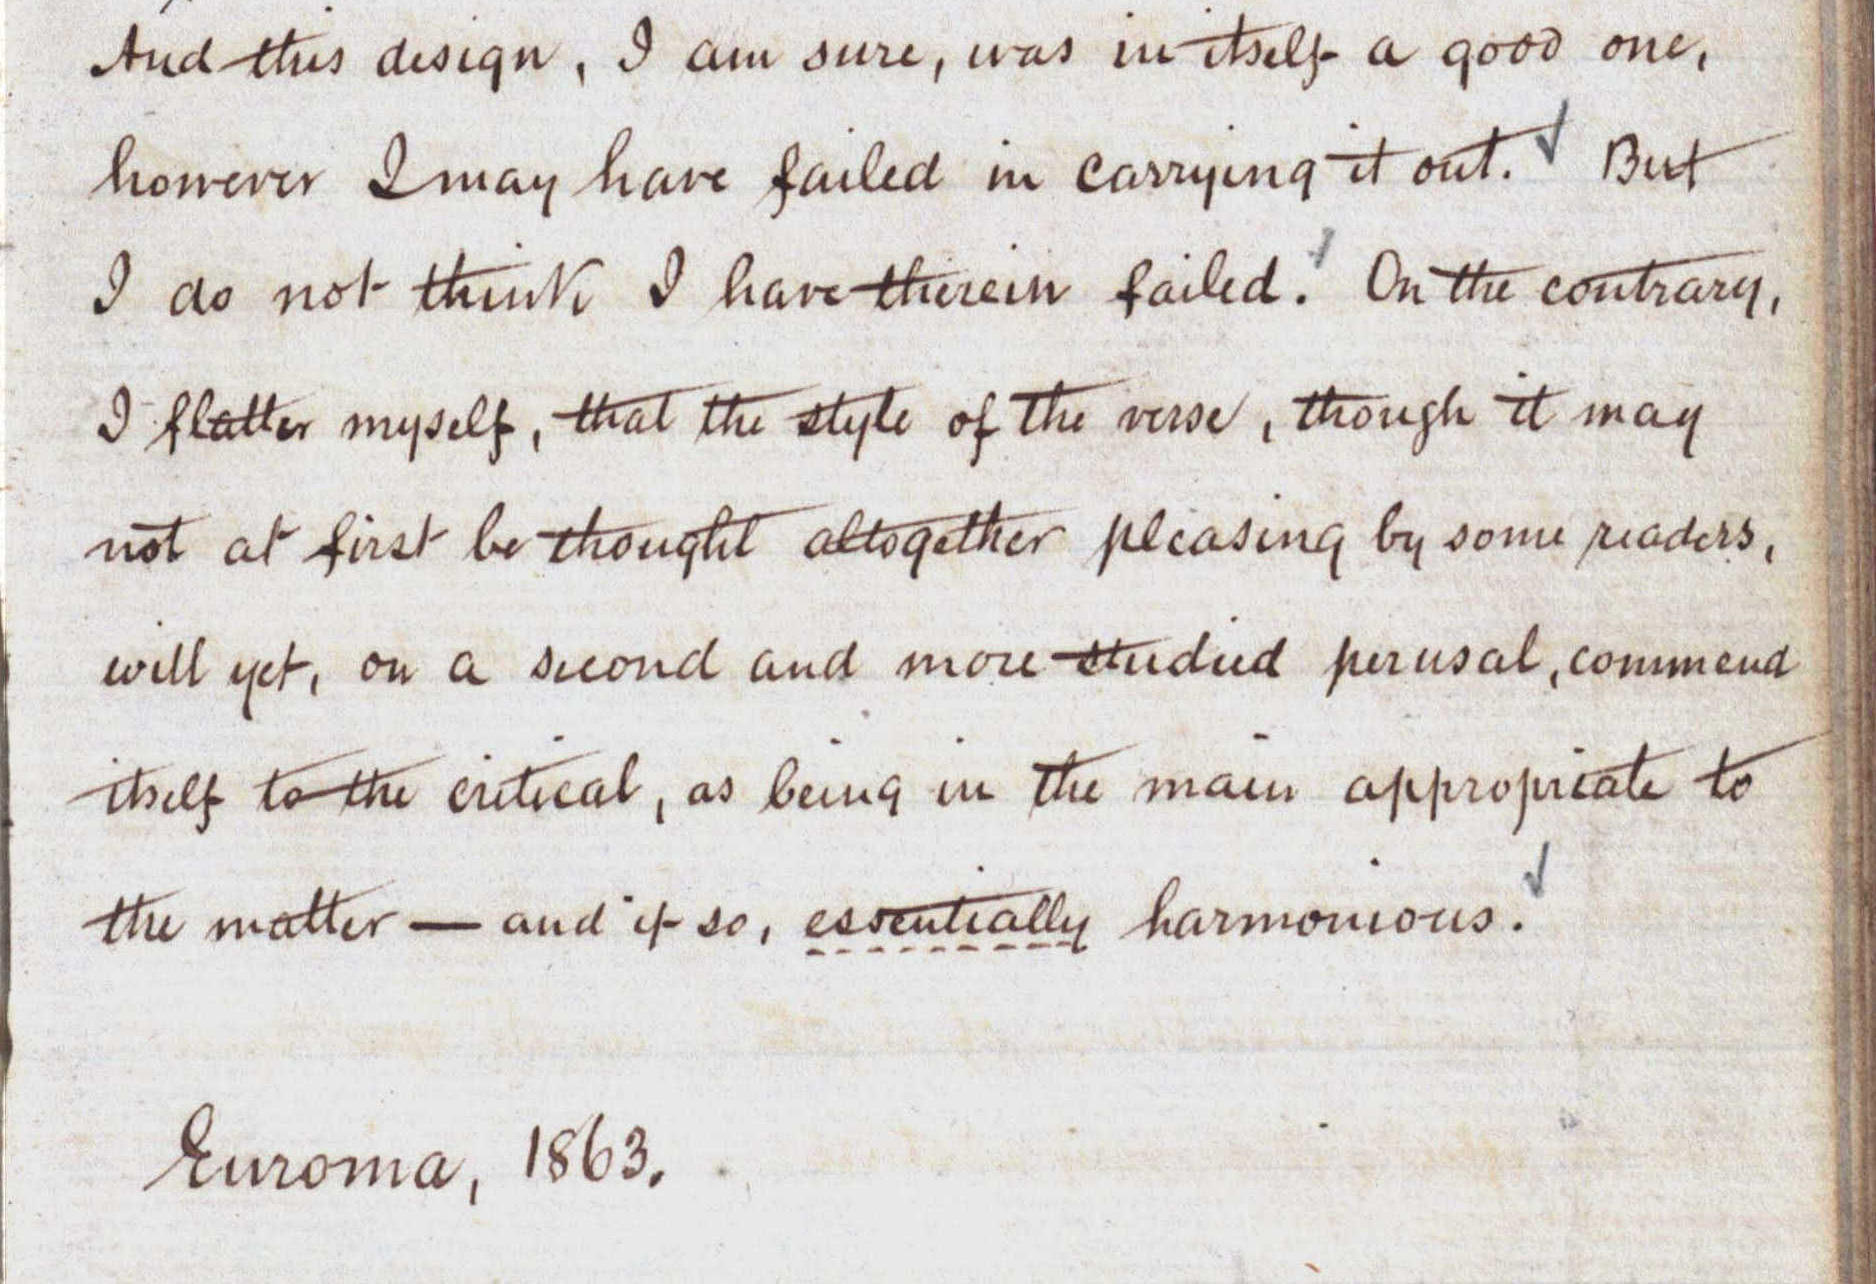 And this design, I am sure, was in itself a good one,
however I may have failed in carrying it out. But
I do not think I have therein failed. On the contrary,
I flatter myself, that the style of the verse, though it may
not at first be thought altogether pleasing by some readers,
will yet, on a second and more studied perusal, commend
itself to the critical, as being in the main appropriate to
the matter — and if so, essentially harmonious.
Euroma, 1863.